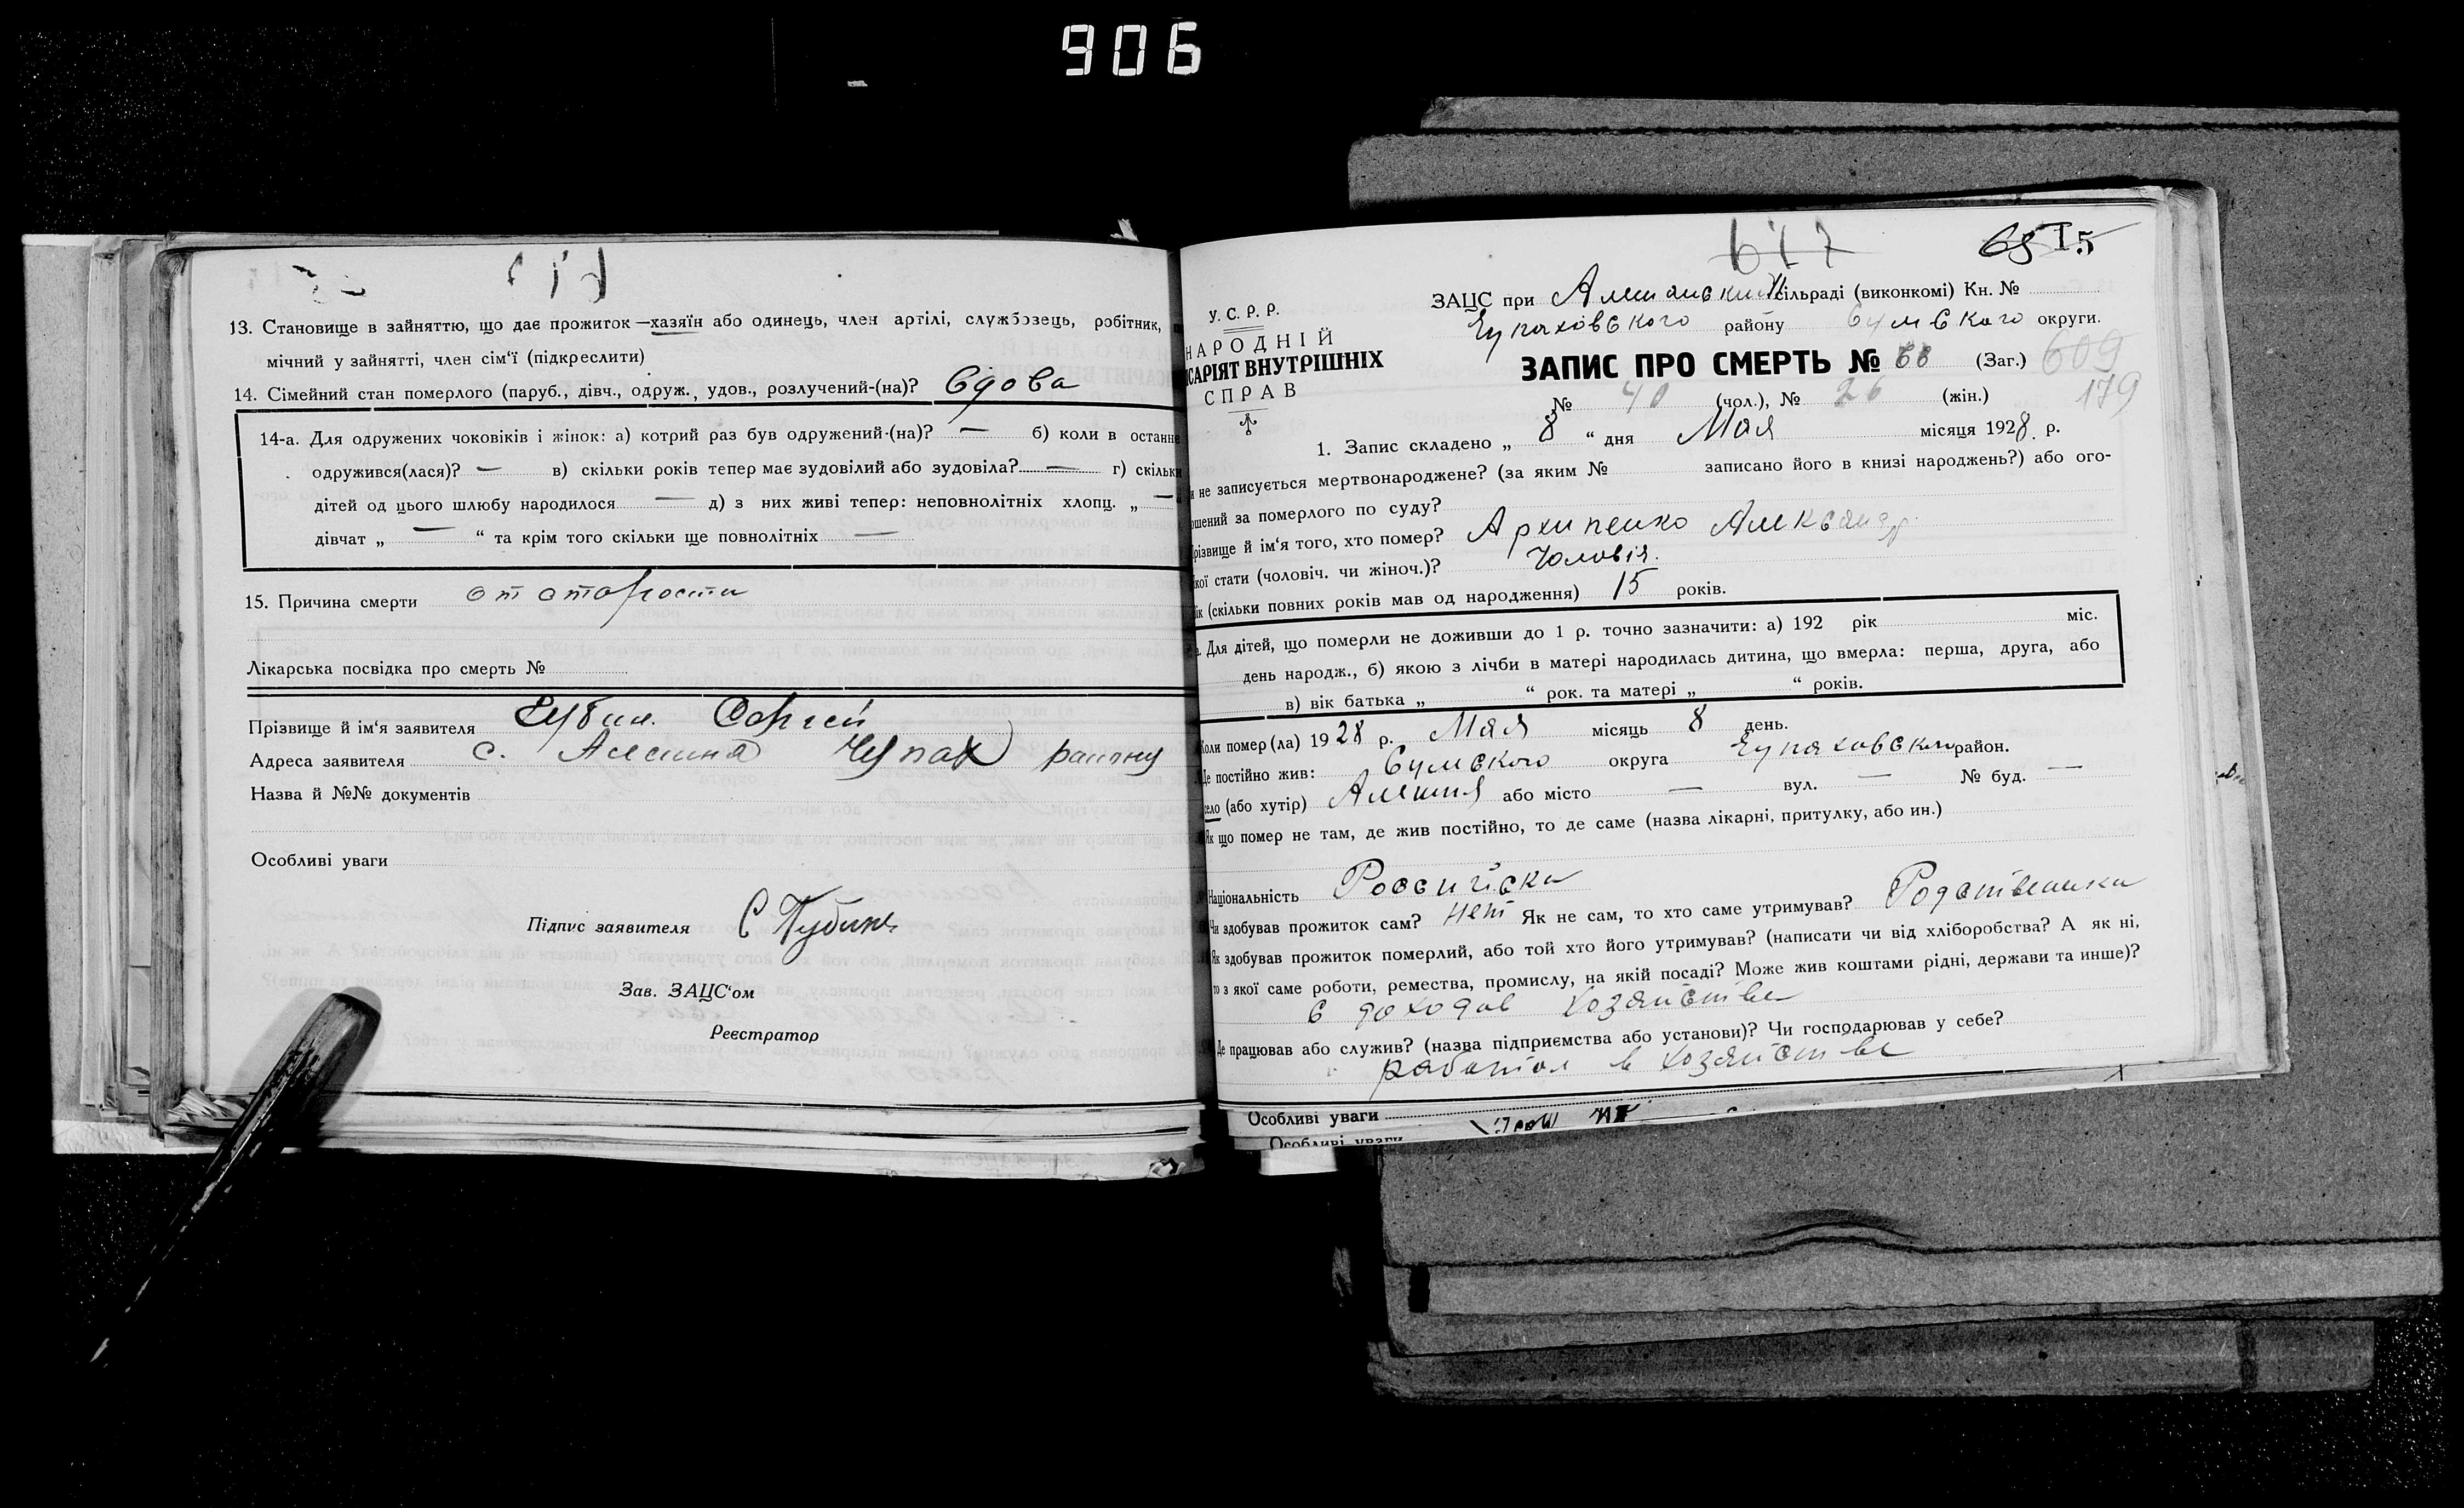 906
13. Становище в зайняттю, що дає прожиток—хазяїн або одинець, член артілі, службовець, робітник,
мічний у зайнятті, член сім'ї (підкреслити)
14. Сімейний стан померлого (паруб., дівч., одруж., удов., розлучений-(на)? Вдова
14-а. Для одружених чоковіків і жінок: а) котрий раз був одружений-(на)? — б) коли в останнє
одружився(лася)? — в) скільки років тепер має зудовілий або зудовіла? — г) скільки
дітей од цього шлюбу народилося — д) з них живі тепер: неповнолітніх хлопц. „ —
дівчат „ — “ та крім того скільки ще повнолітніх —
15. Причина смерти от старости
Лікарська посвідка про смерть №
Прізвище й ім'я заявителя Сергей
Адреса заявителя с. Алешня Чупах району
Назва й №№ документів
Особливі уваги
Підпис заявителя С
Зав. ЗАЦС'ом
Реєстратор
617
68 15
У. С. Р. Р.
НАРОДНІЙ
ІСАРІЯТ ВНУТРІШНІХ
СПРАВ
ЗАЦС при Алешанский сільраді (виконкомі) Кн. №
Чупаховского району Сумского округи.
ЗАПИС ПРО СМЕРТЬ № 66 (Заг.) 609
№ 40 (чол.), № 26 (жін.) 179
1. Запис складено „ 8 “ дня Мая місяця 1928. р.
и не записується мертвонароджене? (за яким № записано його в книзі народжень?) або ого-
ошений за померлого по суду?
різвище й ім'я того, хто помер? Архипенко Александр
кої стати (чоловіч. чи жіноч.)? Чоловіч.
ік (скільки повних років мав од народження) 15 років.
а. Для дітей, що померли не доживши до 1 р. точно зазначити: а) 192 рік міс.
день народж., б) якою з лічби в матері народилась дитина, що вмерла: перша, друга, або
в) вік батька „ “ рок. та матері „ “ років.
Коли помер(ла) 1928 р. Мая місяць 8 день.
Де постійно жив: Сумского округа Чупаховского район.
село (або хутір) Алешня або місто — вул. — № буд. —
Як що помер не там, де жив постійно, то де саме (назва лікарні, притулку, або ин.)
Національність Российска
Чи здобував прожиток сам? Нет Як не сам, то хто саме утримував? Родственики
Як здобував прожиток померлий, або той хто його утримував? (написати чи від хліборобства? А як ні,
то з якої саме роботи, ремества, промислу, на якій посаді? Може жив коштами рідні, держави та инше)?
С доходов хозяйства
Де працював або служив? (назва підприємства або установи)? Чи господарював у себе?
работал в хозяйстве
Особливі уваги
Особливі уваги